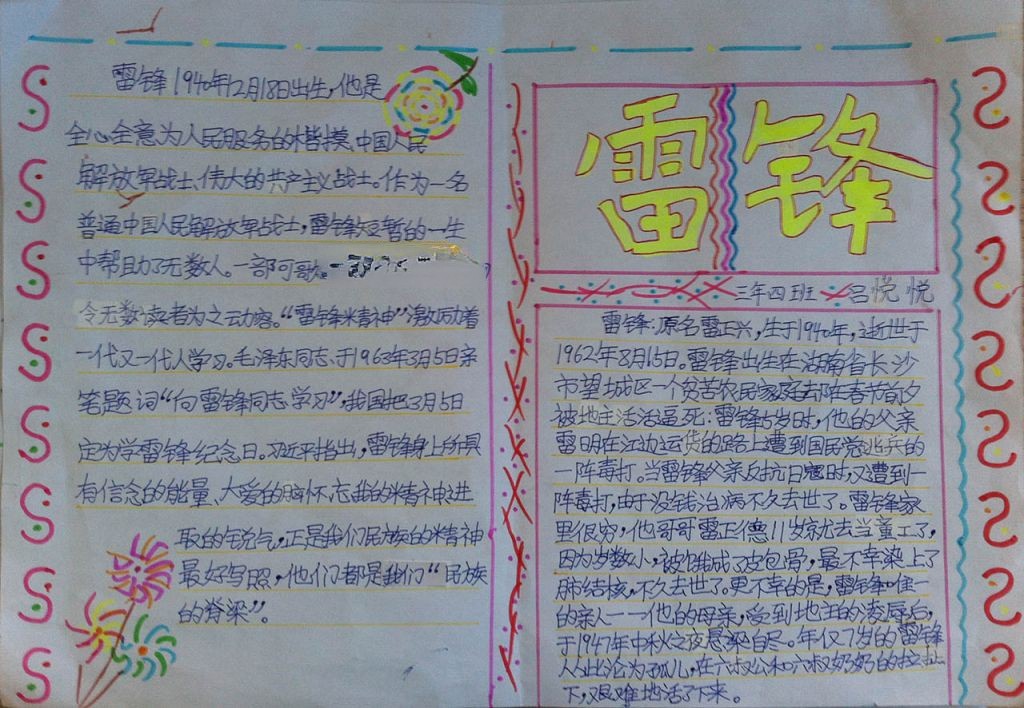 雷锋1940年12月18日出生,他是
全心全意为人民服务的楷摸、中国人民
解放军战士、伟大的共产主义战士。作为一名
普通中国人民解放军战士,雷锋短暂的一生
中帮助了无数人。一部可歌
令无数读者为之云动容。“雷锋精神”激励着
一代又一代人学习。毛泽东同志于1963年3月5日亲
笔题词“向雷锋同志学习”,我国把3月5日
定为学雷锋纪念日。习近平指出,雷锋身上所具
有信念的能量、大爱的胸怀、忘我的精神、进
取的锐气,正是我们民族的精神
最好写照,他们都是我们“民族
的脊梁”。
雷锋
三年四班 吕悦悦
雷锋:原名雷正兴,生于1940年,逝世于
1962年8月15日。雷锋出生在湖南省长沙
市望城区一个贫苦农民家庭去年春节前夕
被地主活活逼死:雷锋5岁时,他的父亲
雷明在江边运货的路上遭到国民党逃兵的
一阵毒打。当雷锋父亲反抗日寇时,又遭到一
阵毒打,由于没钱治病不久去世了。雷锋家
里很穷,他哥哥雷正德11岁就去当童工了,
因为岁数小,被饿成了皮包骨,最不幸染上了
肺结核,不久去世了。更不幸的是,雷锋唯一
的亲人——他的母亲,受到地主的凌辱后,
于1947年中秋之夜悬梁自尽。年仅7岁的雷锋
从此沦为孤儿,在六叔公和六叔奶奶的拉扯
下,艰难地活了下来。